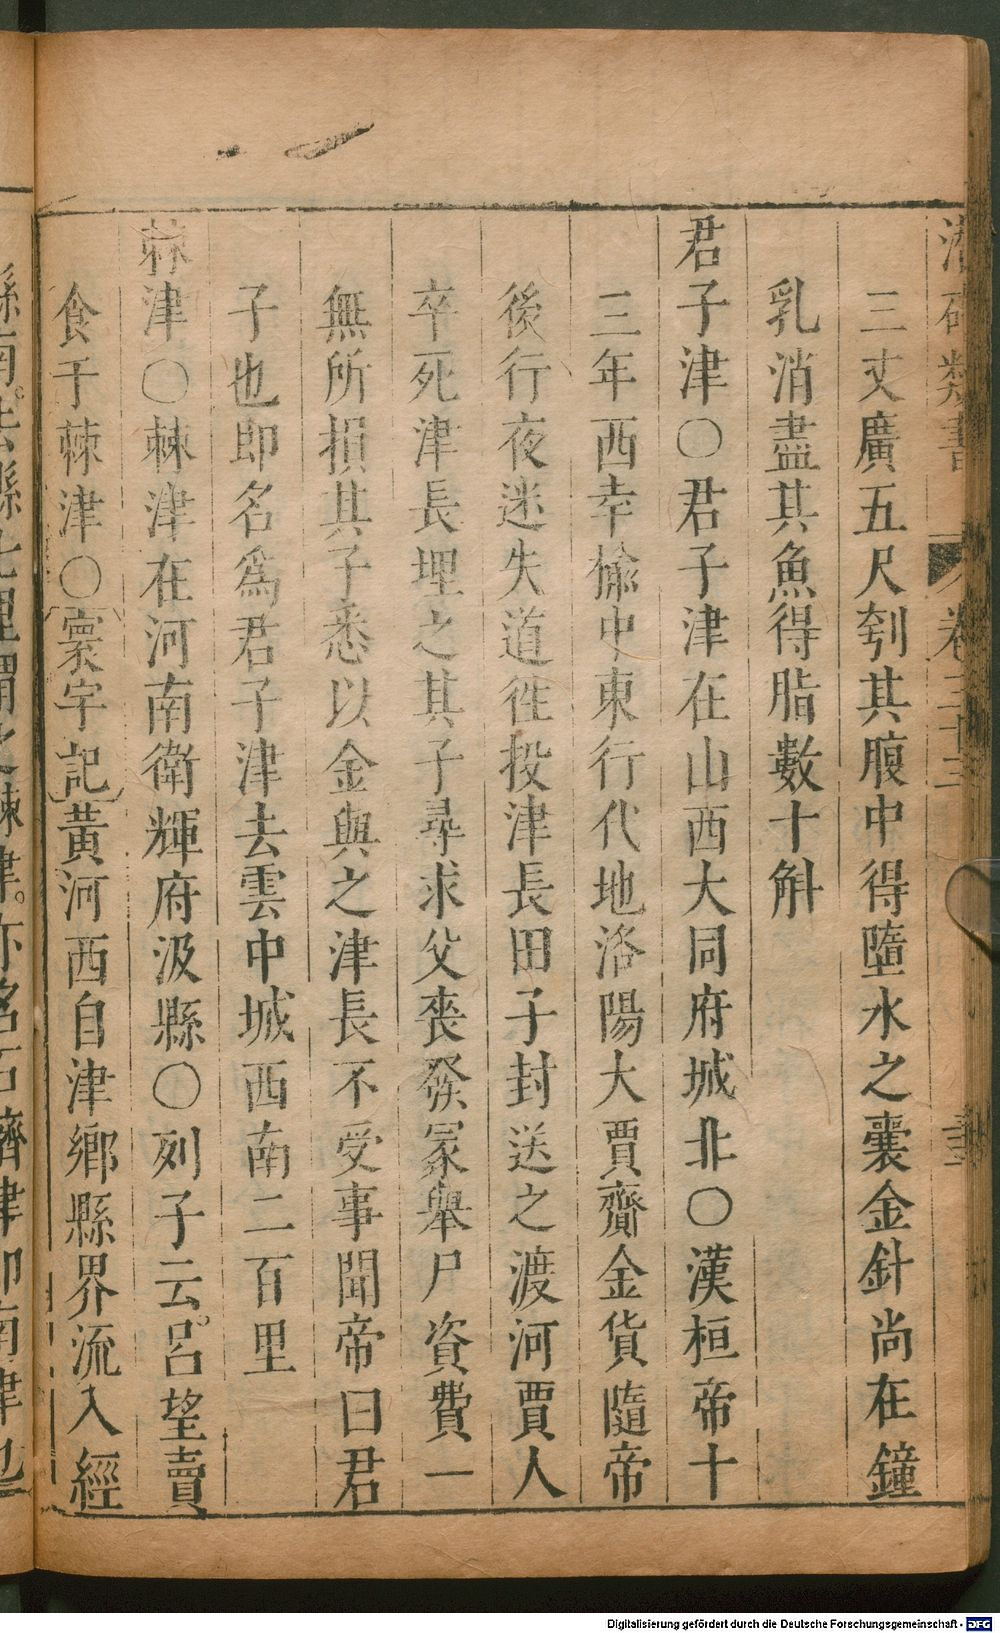 類書 卷三十三
三丈廣五尺刳其腹中得墮水之囊金針尚在鐘
乳消盡其魚得脂數十斛
君子津〇君子津在山西大同府城北〇漢桓帝十
三年西幸榆中東行代地洛陽大賈齎金貨隨帝
後行夜迷失道往投津長田子封送之渡河賈人
卒死津長埋之其子尋求父喪發冢舉尸資費一
無所損其子悉以金與之津長不受事聞帝曰君
子也即名為君子津去雲中城西南二百里
棘津〇棘津在河南衛輝府汲縣〇列子云。呂望賣
食于棘津〇寰宇記黃河西自津鄉縣界流入經
縣南。去縣七里謂之棘津。亦名石濟津即南津也
Digitalisierung gefördert durch die Deutsche Forschungsgemeinschaft - DFG